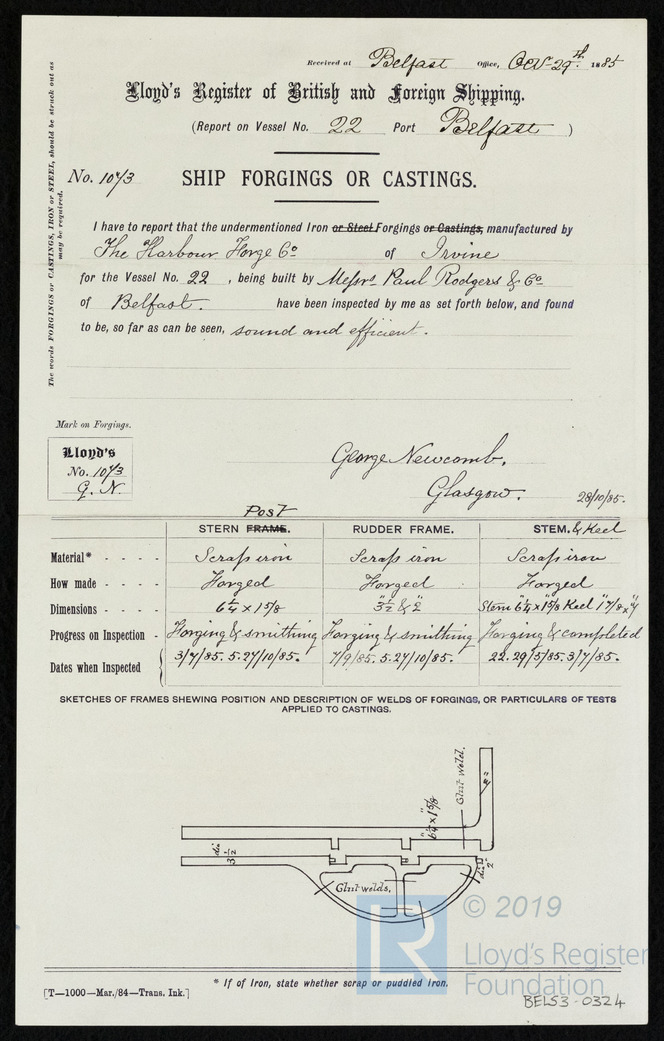 Received at Belfast Office, Oct 29th 1885
Lloyd's Register of British and Foreign Shipping.
(Report on Vessel No. 22 Port Belfast )
No. 1073
SHIP FORGINGS OR CASTINGS.
The words FORGINGS or CASTINGS, IRON or STEEL, should be struck out as
may be required.
I have to report that the undermentioned Iron or Steel Forgings or Castings, manufactured by
The Harbour Forge Co of Irvine
for the Vessel No. 22, being built by Messrs Paul Rodgers & Co
of Belfast. have been inspected by me as set forth below, and found
to be, so far as can be seen, sound and efficient.
Mark on Forgings.
Lloyd's
No. 1073
G. N.
George Newcomb.
Glasgow. 28/10/85.
Post
STERN FRAME. RUDDER FRAME. STEM. & Keel
Material* - - - - Scrap iron Scrap iron Scrap iron
How made - - - - Forged Forged Forged
Dimensions - - - - 6¼ x 1⅝ 3½" & 2" Stem 6¼ x 1⅝ Keel
Progress on Inspection - Forging & smithing Forging & smithing Forging & completed
Dates when Inspected 3/7/85. 5.27/10/85. 7/9/85. 5.27/10/85. 22.29/5/85. 3/7/85.
SKETCHES OF FRAMES SHEWING POSITION AND DESCRIPTION OF WELDS OF FORGINGS, OR PARTICULARS OF TESTS
APPLIED TO CASTINGS.
Glut weld.
6¼ x 1⅝"
dia
3½
Glut welds.
dia
2"
© 2019
LR
Lloyd's Register
Foundation
* If of Iron, state whether scrap or puddled iron.
[T—1000—Mar./84—Trans. Ink.]
BEL53-0324